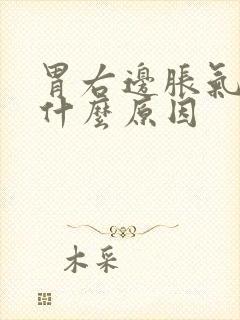 胃右邊脹氣
什麼原因
木采